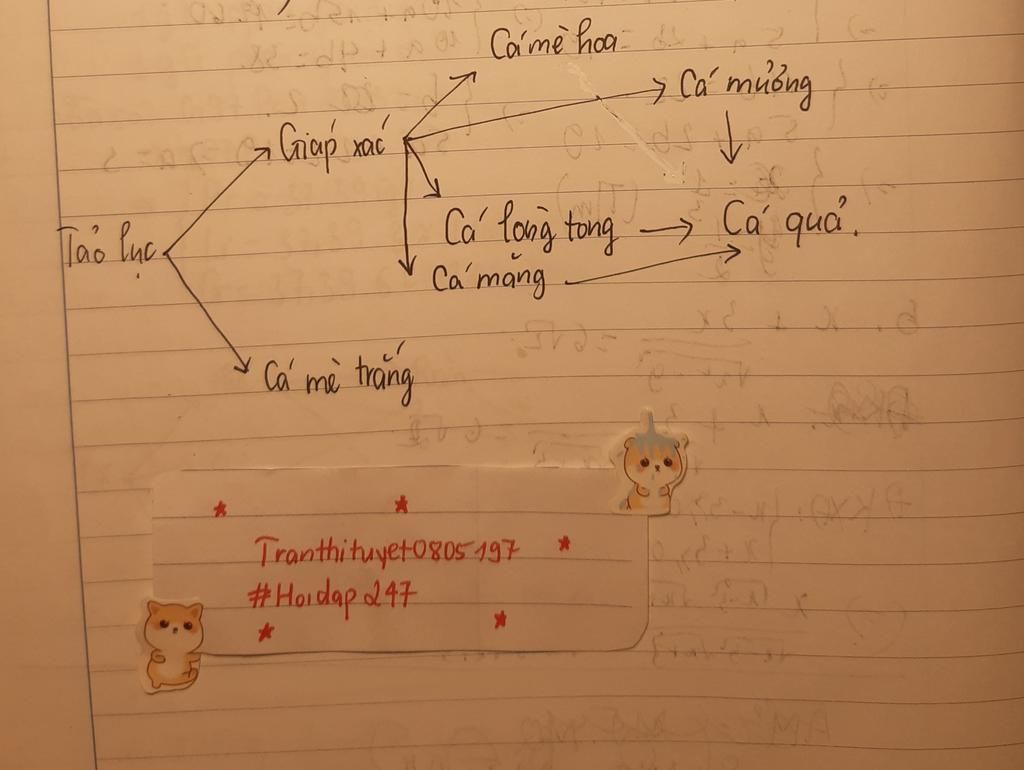 Cá mè hoa
Cá mưởng
Giáp xác
Cá lòng tong
Cá quả.
Tảo lục
Cá măng
Cá mè trắng
Tranthituyet0805197
#Hoidap247